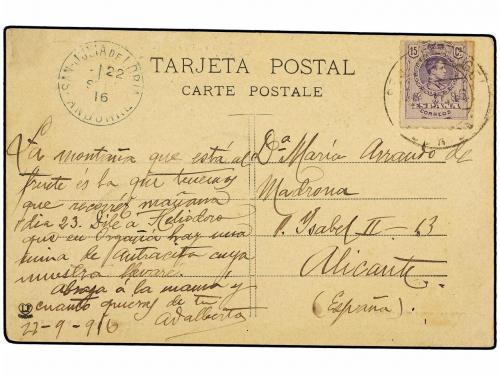 SAN-JULIA DE LORIA
22
16
ANDORRA
TARJETA POSTAL
CARTE POSTALE
15 Cs
ESPAÑA
CORREOS
La montaña que está al
frente és la que tenemos
que recorrer mañana
dia 23. Dile a Heliodoro
que en España hay una
mina de antracita cuya
muestra llevaré.
Abraza á la mamá y
cuanto quieras de tu
Adalberto
22-9-916
Dª María Arrando de
Madrona
P. Isabel II - 63
Alicante
(España)